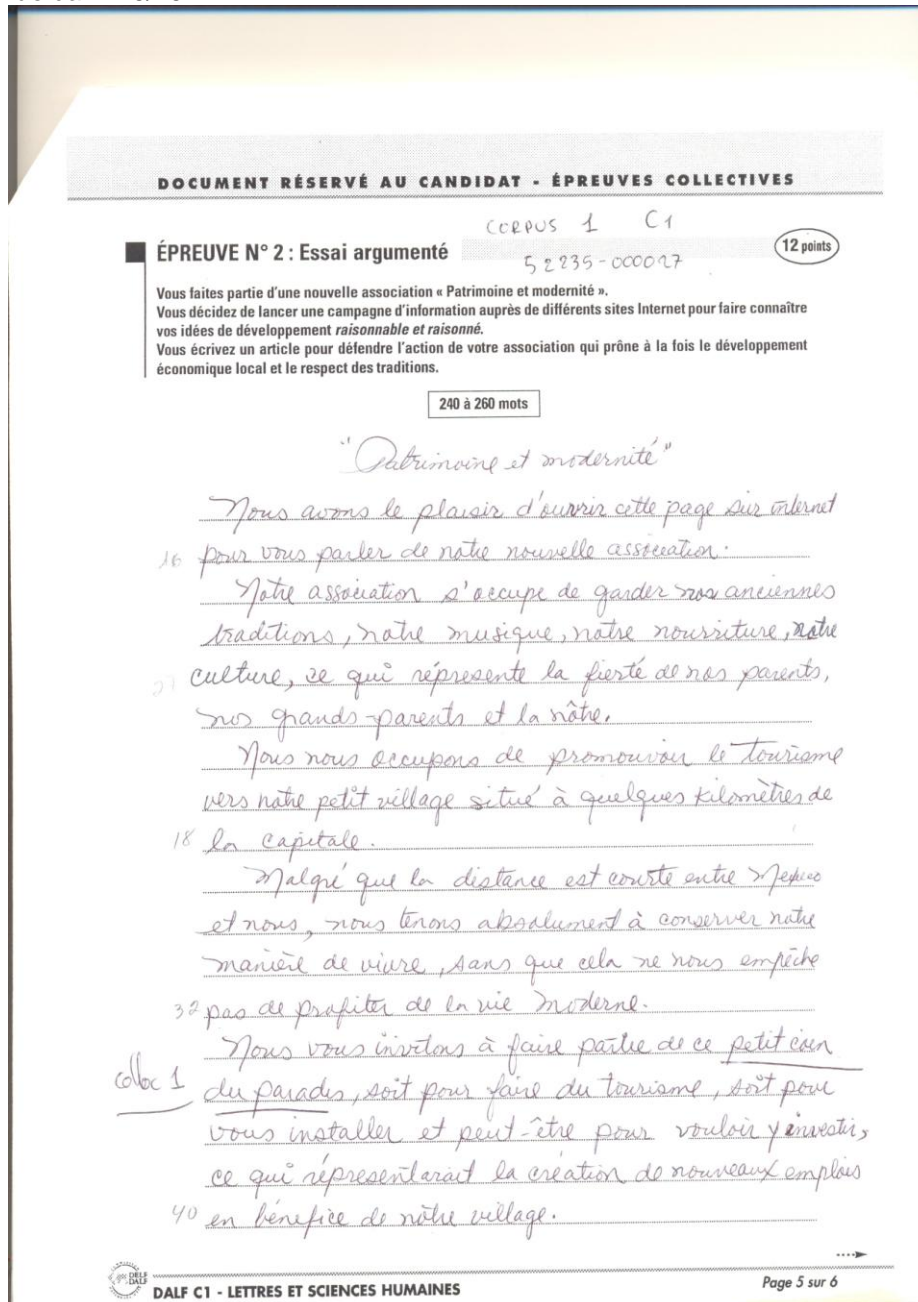 DOCUMENT RÉSERVÉ AU CANDIDAT - ÉPREUVES COLLECTIVES
CORPUS 1 C1
ÉPREUVE N° 2 : Essai argumenté
12 points
52235-000027
Vous faites partie d'une nouvelle association « Patrimoine et modernité ».
Vous décidez de lancer une campagne d'information auprès de différents sites Internet pour faire connaître
vos idées de développement raisonnable et raisonné.
Vous écrivez un article pour défendre l'action de votre association qui prône à la fois le développement
économique local et le respect des traditions.
240 à 260 mots
"Patrimoine et modernité"
Nous avons le plaisir d'ouvrir cette page sur internet
16 pour vous parler de notre nouvelle association.
Notre association s'occupe de garder nos anciennes
traditions, notre musique, notre nourriture, notre
27 culture, ce qui répresente la fierté de nos parents,
nos grands-parents et la nôtre.
Nous nous occupons de promouvoir le tourisme
vers notre petit village situé à quelques kilomètres de
18 la capitale.
Malgré que la distance est courte entre Mexico
et nous, nous tenons absolument à conserver notre
manière de vivre, sans que cela ne nous empêche
32 pas de profiter de la vie moderne.
Nous vous invitons à faire partie de ce petit coin
colloc 1 du paradis, soit pour faire du tourisme, soit pour
vous installer et peut-être pour vouloir y investir,
ce qui répresentarait la création de nouveaux emplois
40 en bénefice de nôtre village.
DELF DALF
DALF C1 - LETTRES ET SCIENCES HUMAINES
Page 5 sur 6